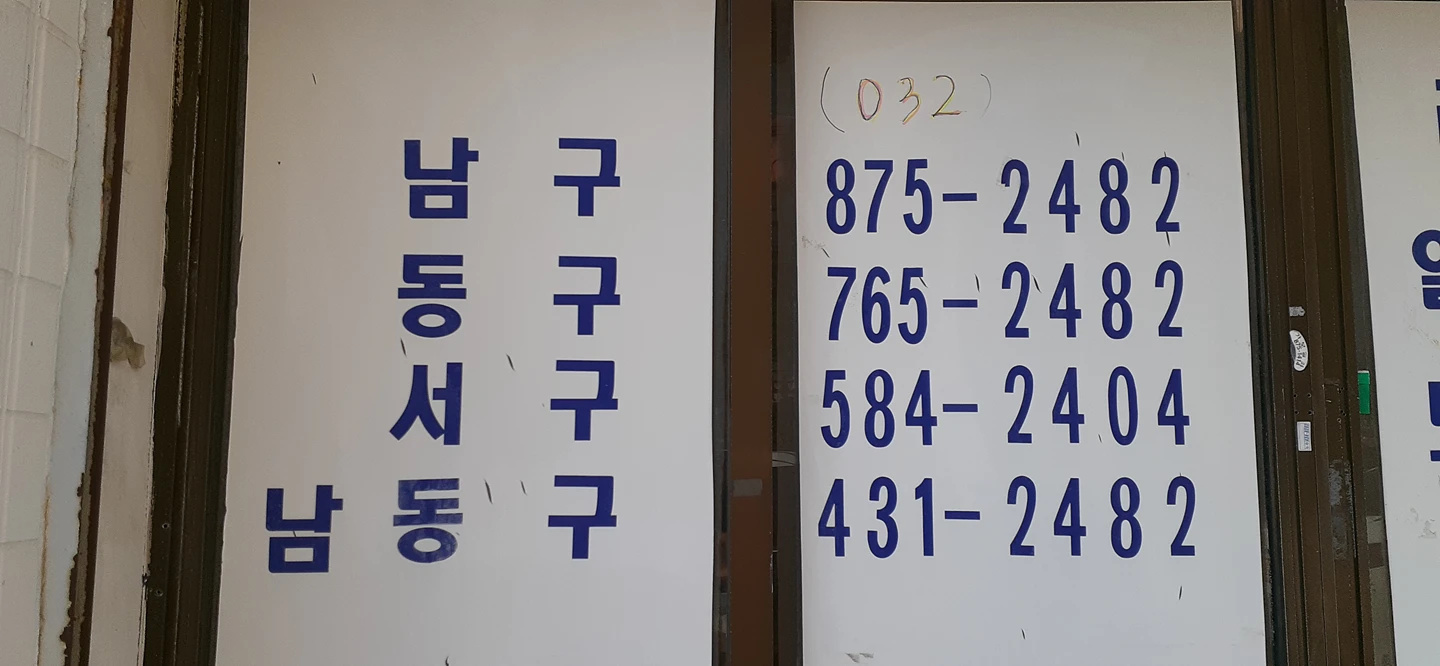 (032)
남 구 875-2482
동 구 765-2482
서 구 584-2404
남 동 구 431-2482